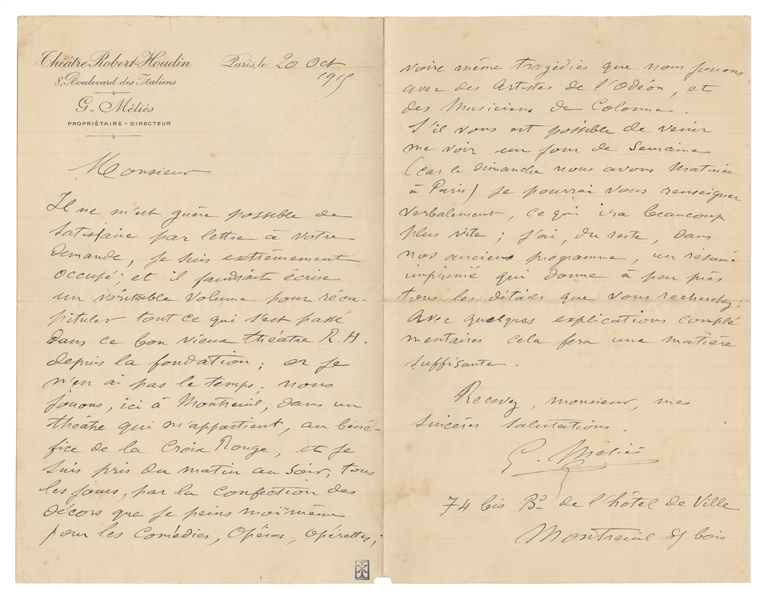 Théâtre Robert-Houdin
8, Boulevard des Italiens
G. Méliés
PROPRIÉTAIRE - DIRECTEUR
Paris, le 20 Oct
1915
Monsieur
Il ne m'est guère possible de
satisfaire par lettre à votre
demande, je suis extrêmement
occupé; et il faudrait écrire
un véritable volume pour réca-
pituler tout ce qui s'est passé
dans ce bon vieux théâtre R.H.
depuis la fondation; or je
n'en ai pas le temps, nous
jouons, ici à Montreuil, dans un
théâtre qui m'appartient, au béné-
fice de la Croix Rouge, et je
suis pris du matin au soir, tous
les jours, par la confection des
décors que je peins moi-même
pour les Comédies, Opéras, Opérettes,
voire même tragédies que nous jouons
avec des Artistes de l'Odéon, et
des Musiciens de Colonne.
S'il vous est possible de venir
me voir un jour de Semaine
(car le dimanche nous avons Matinée
à Paris) je pourrai vous renseigner
verbalement, ce qui ira beaucoup
plus vite; j'ai, du reste, dans
nos anciens programme, un résumé
imprimé qui donne à peu près
tous les détails que vous recherchez.
Avec quelques explications complé
mentaires cela fera une matière
suffisante.
Recevez, monsieur, mes
sincères salutations.
G. Méliés
74 bis Bd de l'hôtel de Ville
Montreuil s/ bois